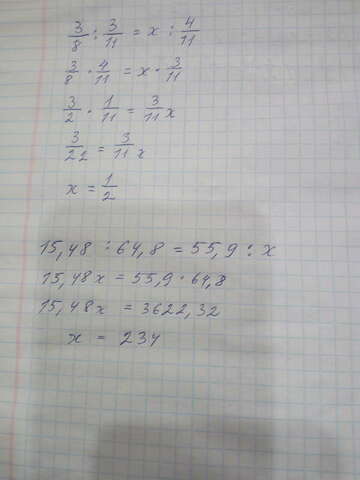 3/8 : 3/11 = x : 4/11
3/8 · 4/11 = x · 3/11
3/2 · 1/11 = 3/11 x
3/22 = 3/11 x
x = 1/2
15,48 : 64,8 = 55,9 : x
15,48x = 55,9 · 64,8
15,48x = 3622,32
x = 234